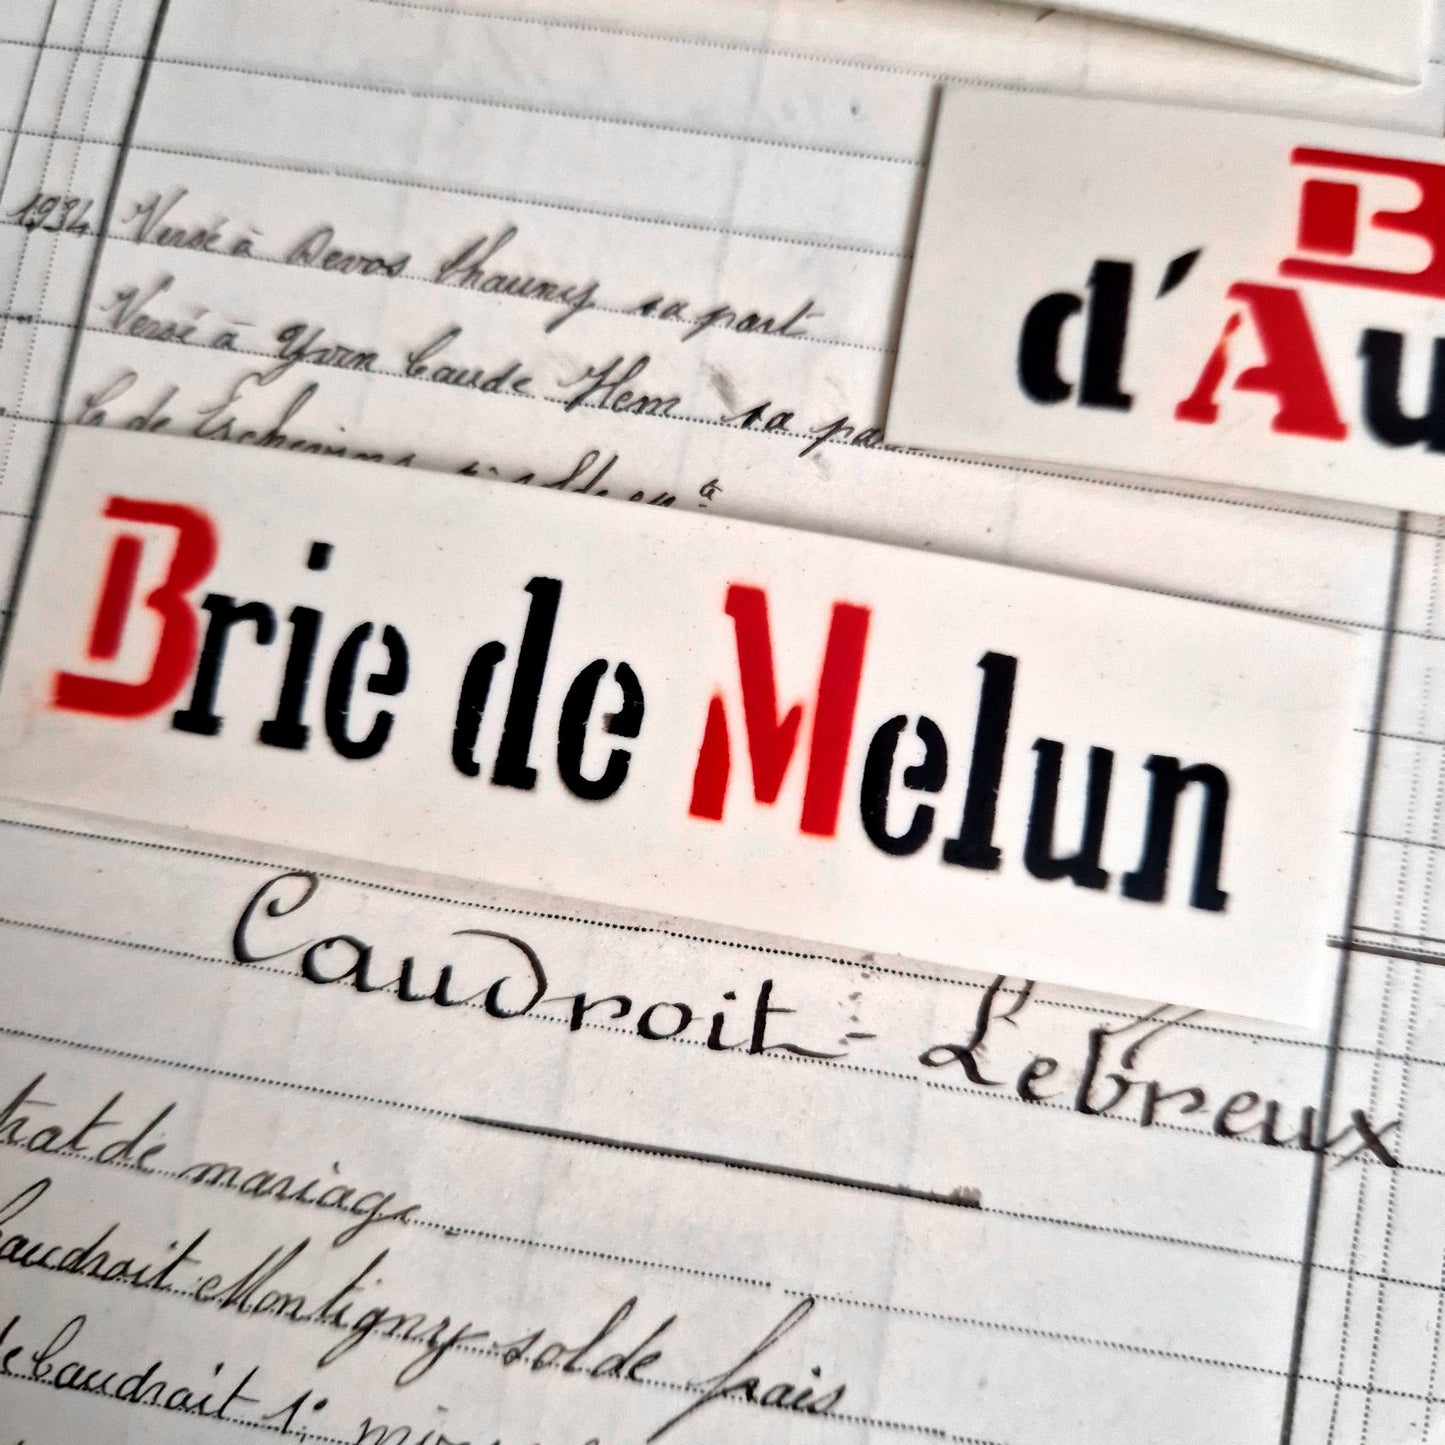 1934 Versé à Devos Chauny sa part
Versé à Yvon Caude Hem sa pa
C de Eschevins solde en
B
d'Au
Brie de Melun
Caudroit - Lebreux
trat de mariage
Caudroit Montigny solde frais
Caudroit 1°